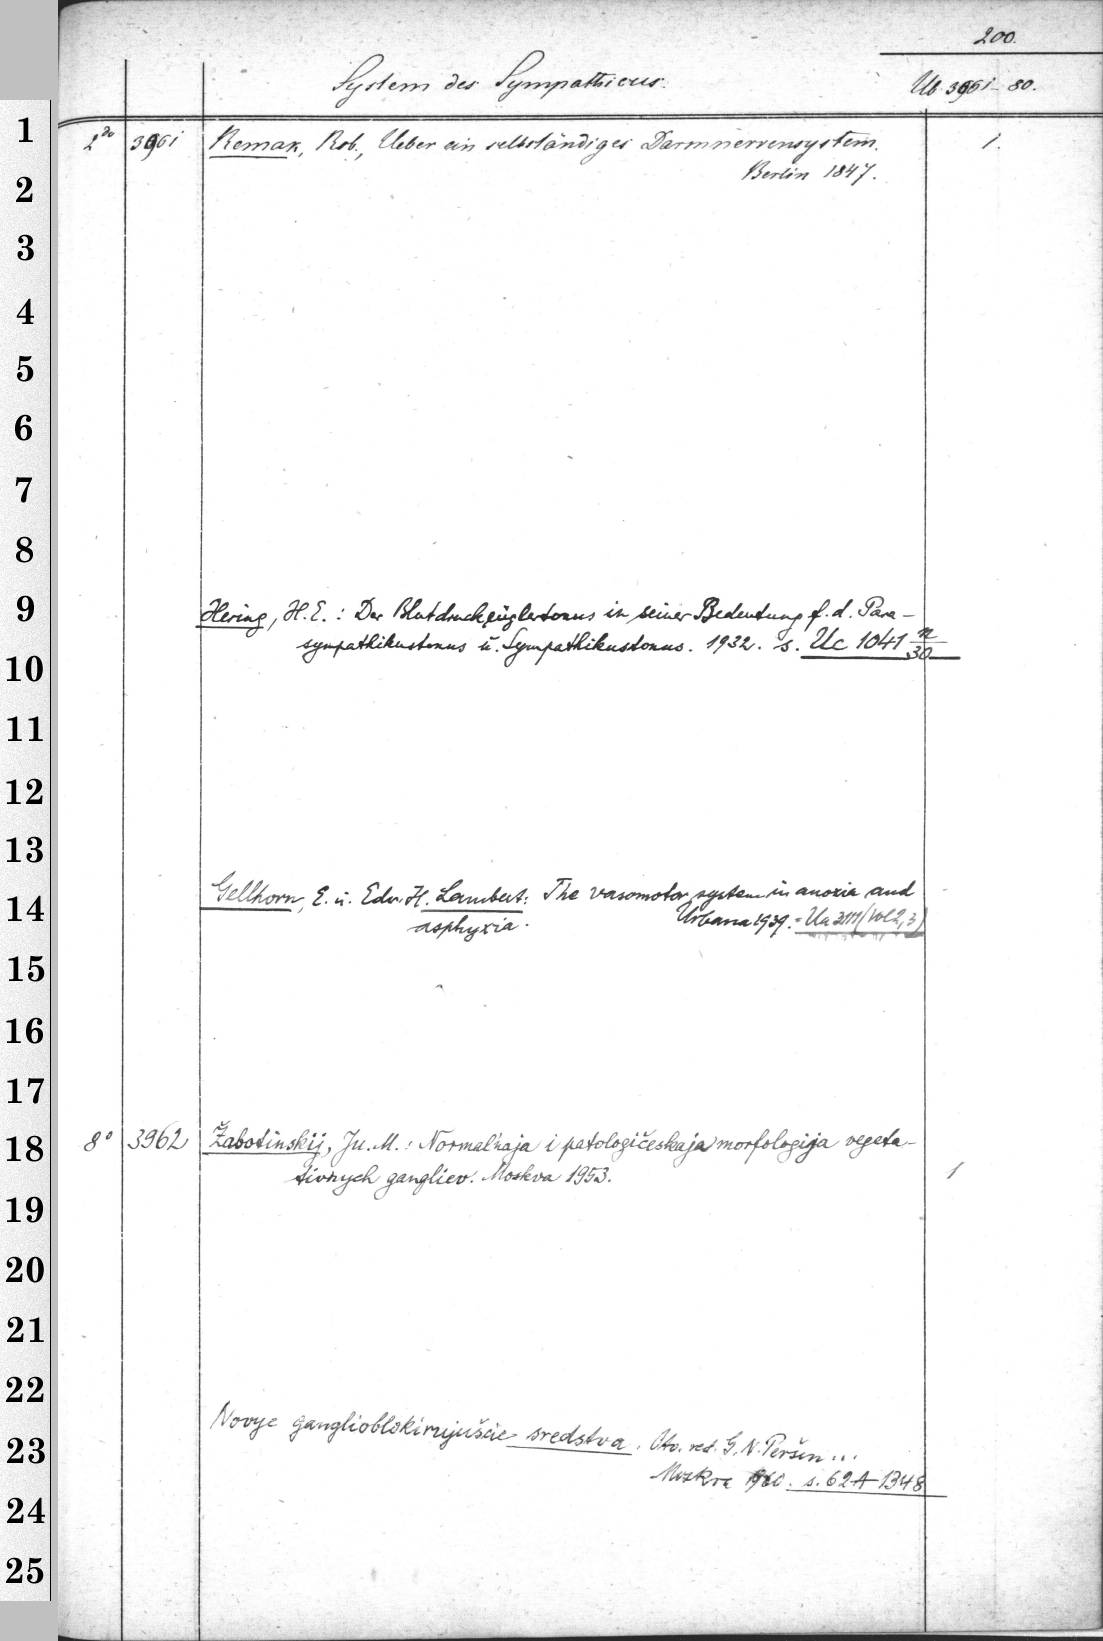 200.
System des Sympathicus.
Ub 3961-80.
1
2do 3961 Remak, Rob., Ueber ein selbständiges Darmnervensystem. 1.
2
Berlin 1847.
3
4
5
6
7
8
9
Hering, H.E.: Der Blutdruckzüglertonus in seiner Bedeutung f. d. Para-
sympathikustonus u. Sympathikustonus. 1932. s. Uc 1041 n/30
10
11
12
13
14
Gellhorn, E. u. Edw. H. Lambert: The vasomotor system in anoxia and
asphyxia. Urbana 1939. = Ua 3111 (vol 2,3)
15
16
17
18
8° 3962 Žabotinskij, Ju. M.: Normal'naja i patologičeskaja morfologija vegeta-
tivnych gangliev. Moskva 1953. 1
19
20
21
22
Novye ganglioblokirujuščie sredstva. Otv. red. G. N. Peršin...
23
Moskva 1960. s. 62 A 1348
24
25